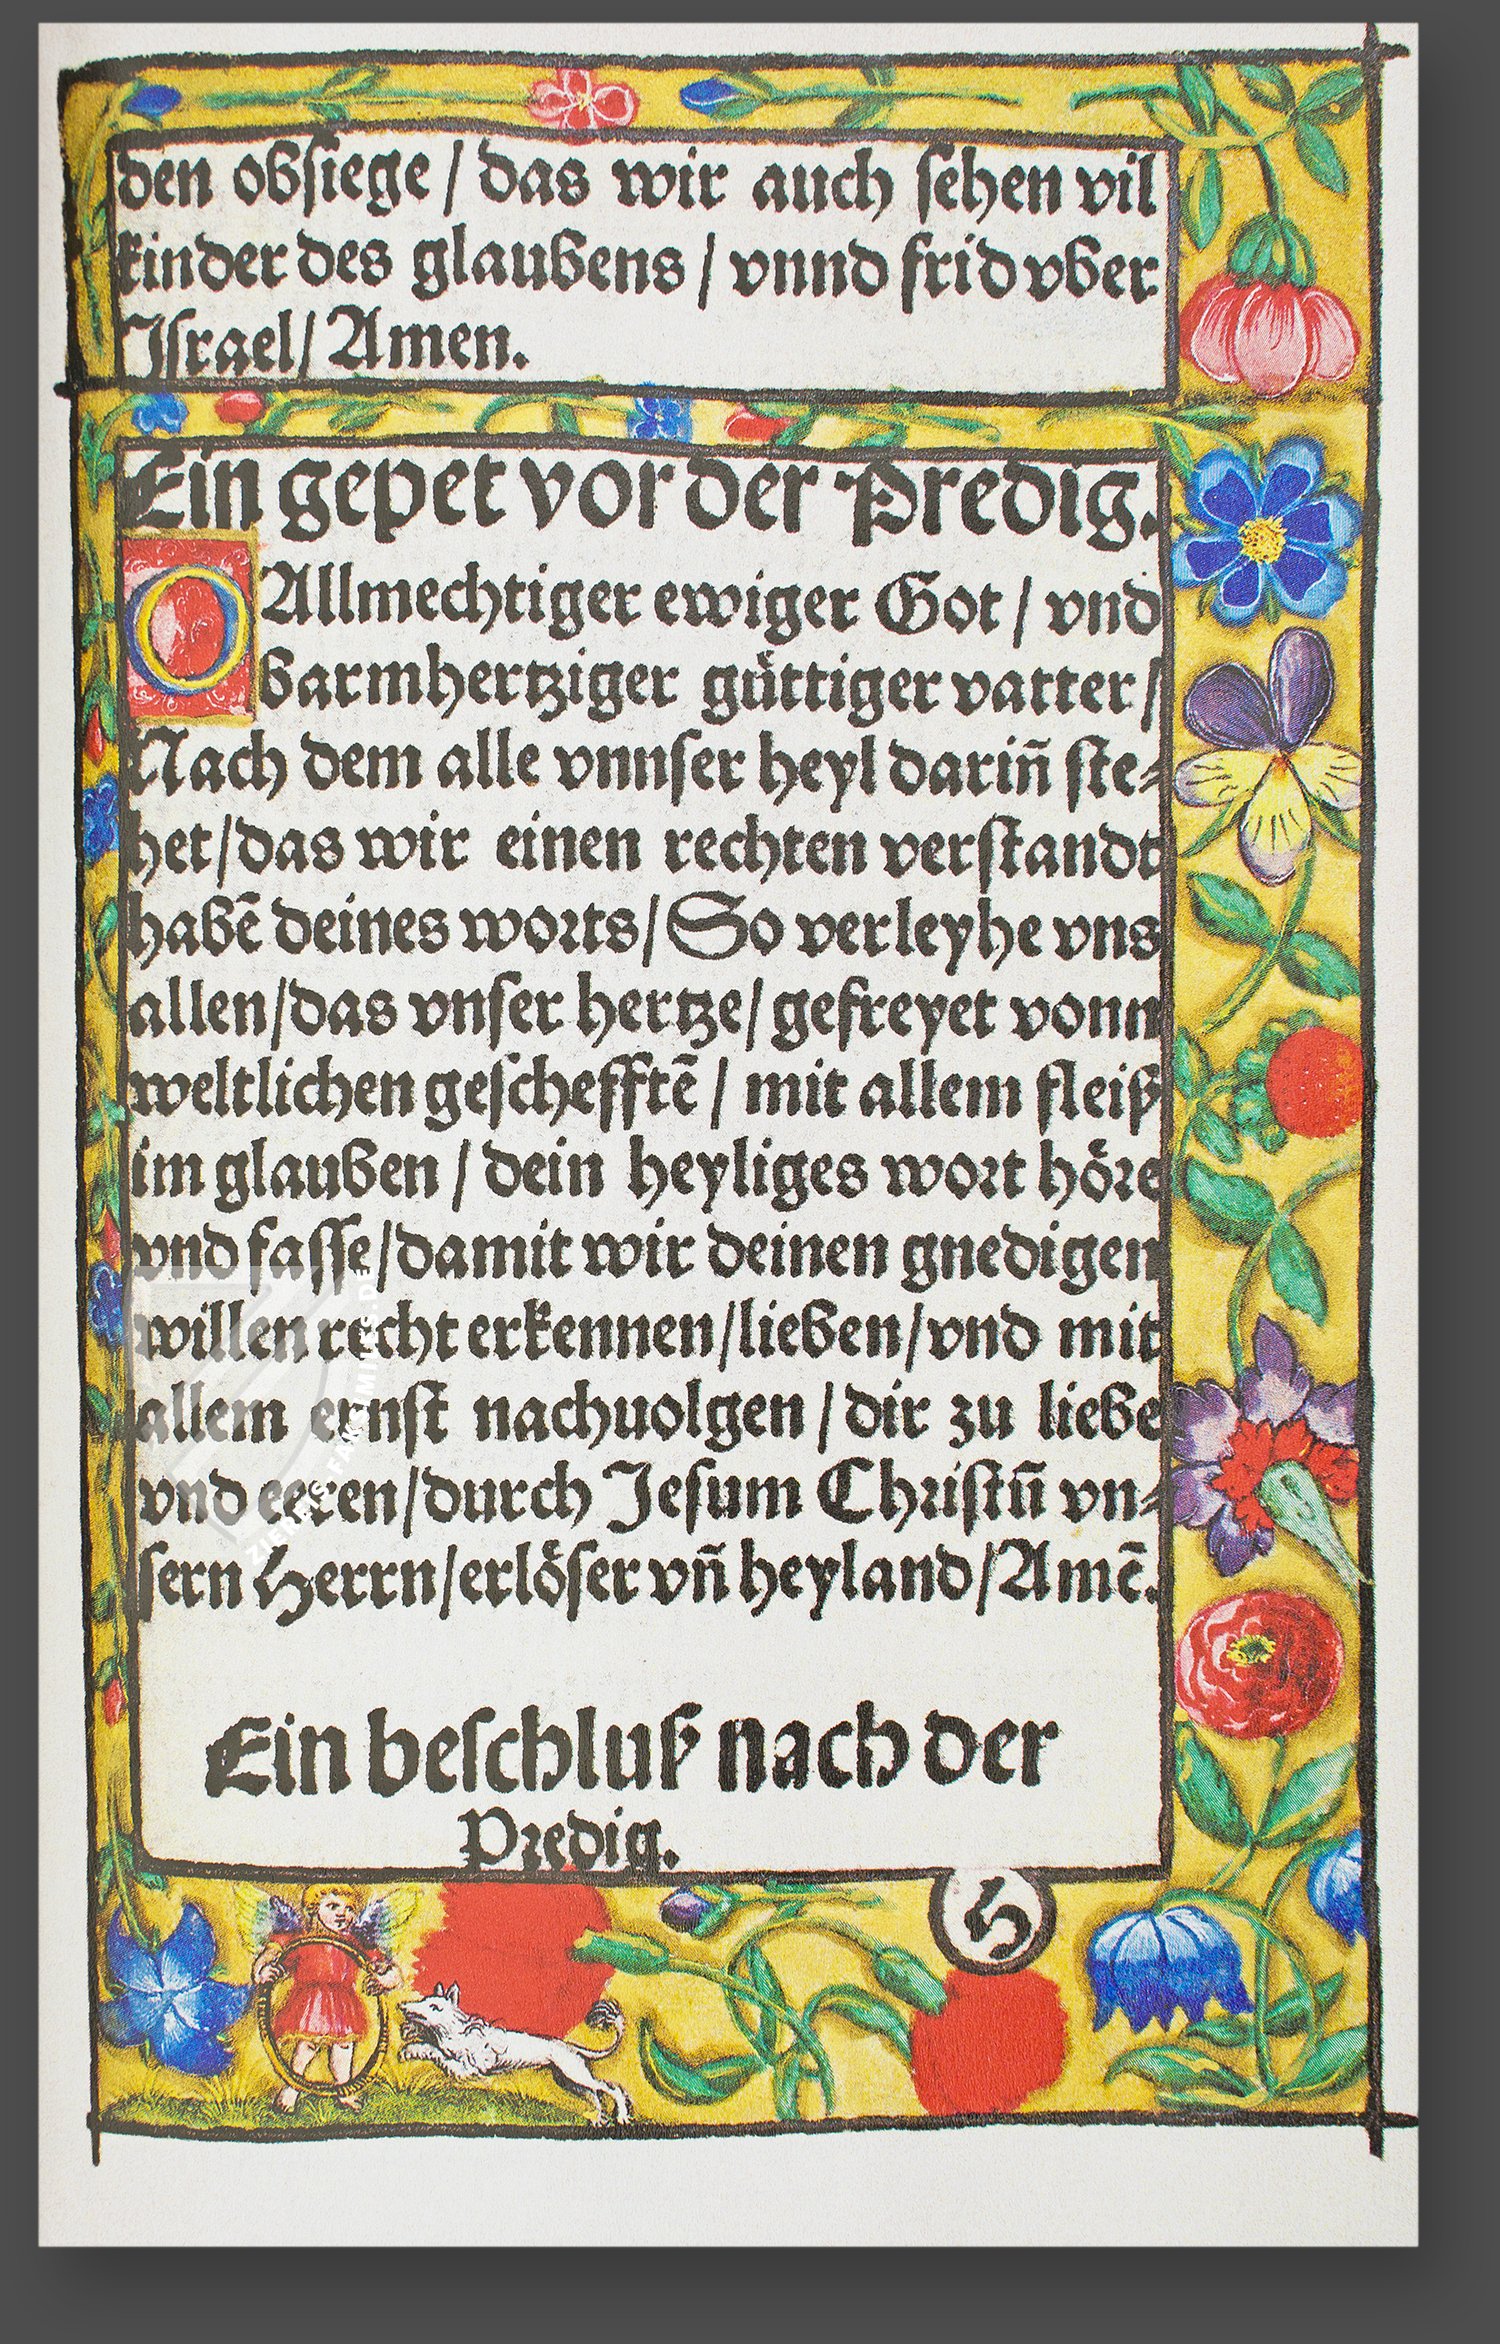 den obsiege / das wir auch sehen vil
kinder des glaubens / vnnd frid vber
Israel / Amen.
Ein gepet vor der Predig.
O Allmechtiger ewiger Got / vnd
barmhertziger gůttiger vatter /
Nach dem alle vnnser heyl darin̄ ste⸗
het / das wir einen rechten verstandt
habē deines worts / So verleyhe vns
allen / das vnser hertze / gefreyet vonn
weltlichen geschefftē / mit allem fleiß
im glauben / dein heyliges wort höre
vnd fasse / damit wir deinen gnedigen
willen recht erkennen / lieben / vnd mit
allem ernst nachuolgen / dir zu liebe
vnd eeren / durch Jesum Christū vn⸗
sern Herrn / erlöser vn̄ heyland / Amē.
Ein beschluß nach der
Predig.